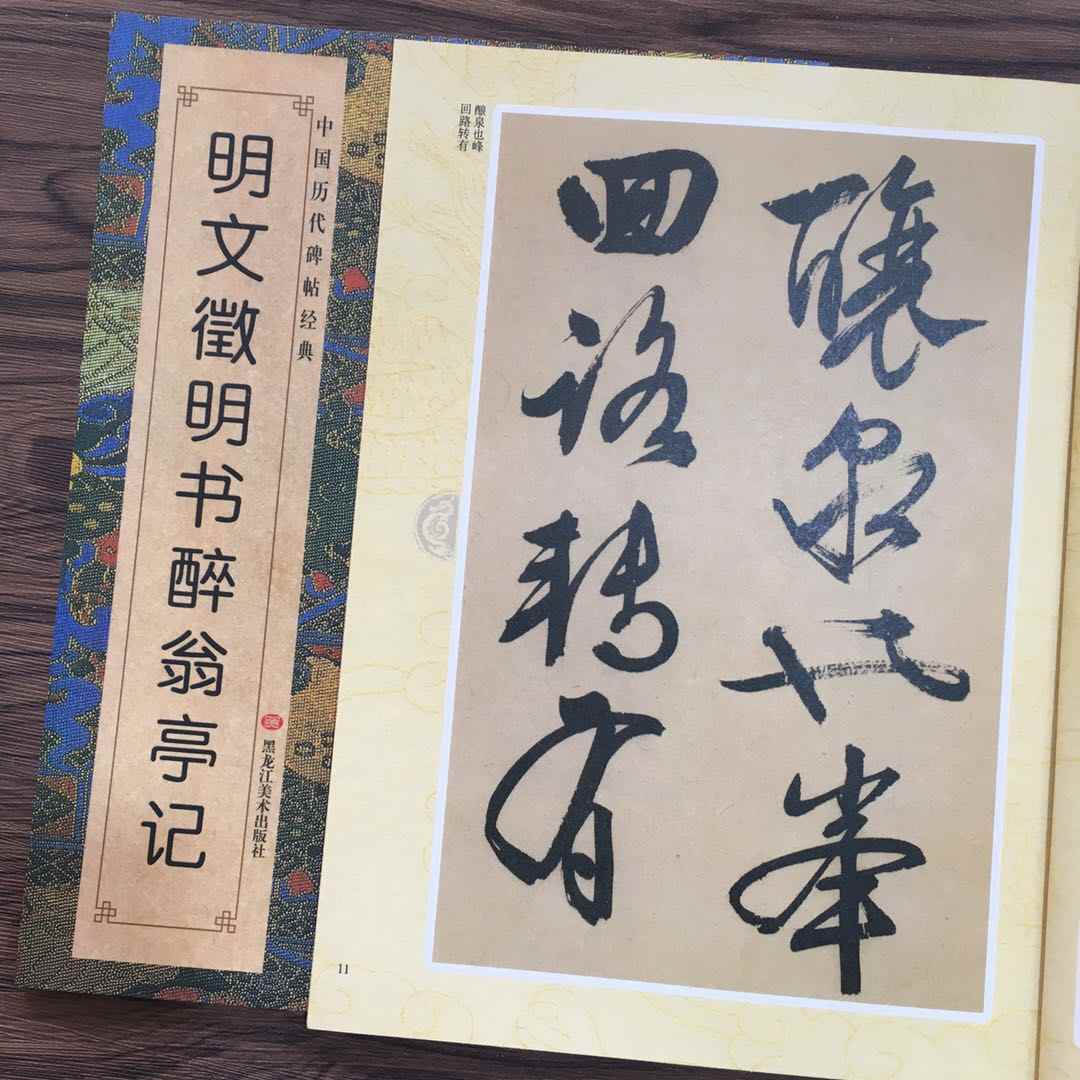 中国历代碑帖经典
明文徵明书醉翁亭记
黑龙江美术出版社
酿泉也峰
回路转有
釀泉也峯
回路轉有
11